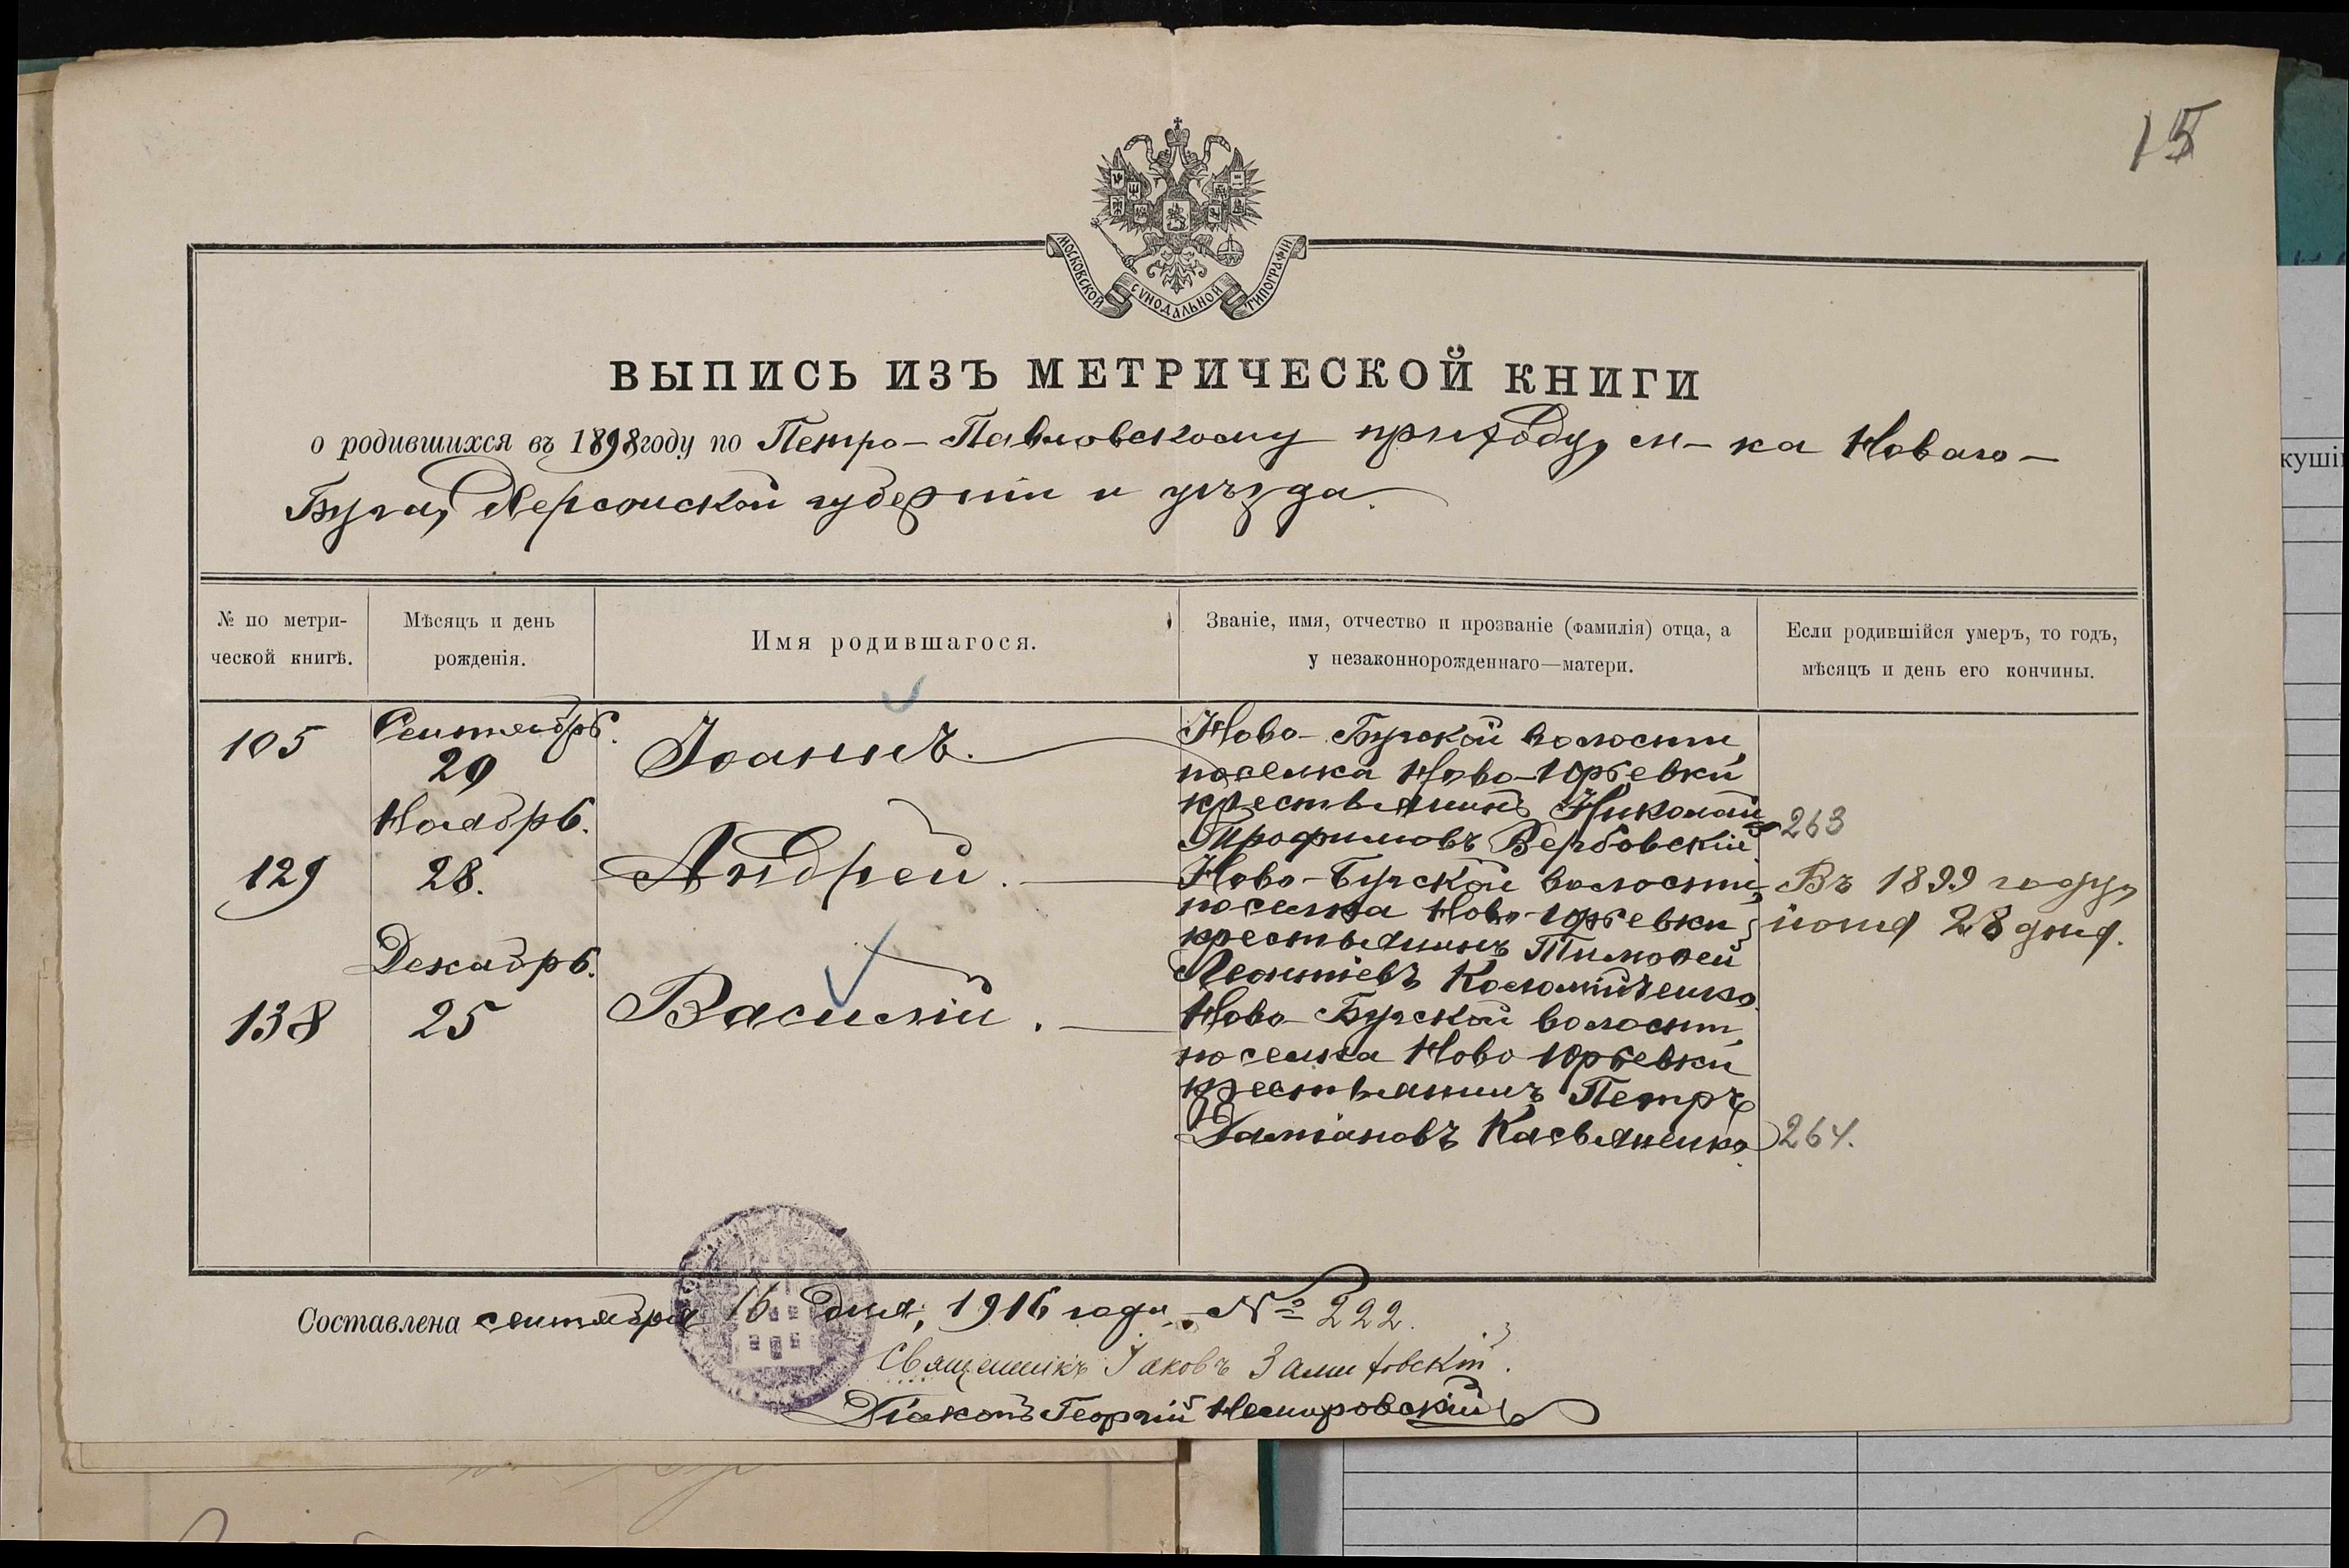 15
МОСКОВСКОЙ СѴНОДАЛЬНОЙ ТИПОГРАФІИ
ВЫПИСЬ ИЗЪ МЕТРИЧЕСКОЙ КНИГИ
о родившихся въ 1898 году по Петро-Павловскому приходу, м-ка Новаго-
Буга, Херсонской губерніи и уѣзда.
№ по метри-
ческой книгѣ.
Мѣсяцъ и день
рожденія.
Имя родившагося.
Званіе, имя, отчество и прозваніе (фамилія) отца, а
у незаконнорожденнаго—матери.
Если родившійся умеръ, то годъ,
мѣсяцъ и день его кончины.
105
Сентябрь.
29
Іоаннъ.
Ново-Бугской волости,
поселка Ново-Юрьевки
крестьянинъ Николай
Трофимовъ Вербовскій
263
129
Ноябрь.
28.
Андрей.
Ново-Бугской волости,
поселка Ново-Юрьевки
крестьянинъ Тимоѳей
Леонтіевъ Коломійченко
Въ 1899 году,
іюня 28 дня.
138
Декабрь.
25
Василій.
Ново-Бугской волости,
поселка Ново Юрьевки
крестьянинъ Петръ
Даміановъ Касьяненко
264.
Составлена сентября 16 дня, 1916 года. № 222.
Священникъ Іаковъ
Діаконъ Георгій Немировскій
кушің